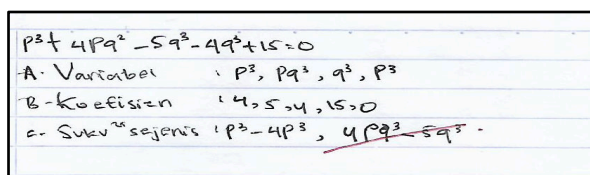 p³ + 4pq² - 5q³ - 4q³ + 15 = 0
A. Variabel : p³, pq³, q³, p³
B. Koefisien : 4, 5, 4, 15, 0
c. Suku²" sejenis : p³ - 4p³, 4pq³ - 5q³.